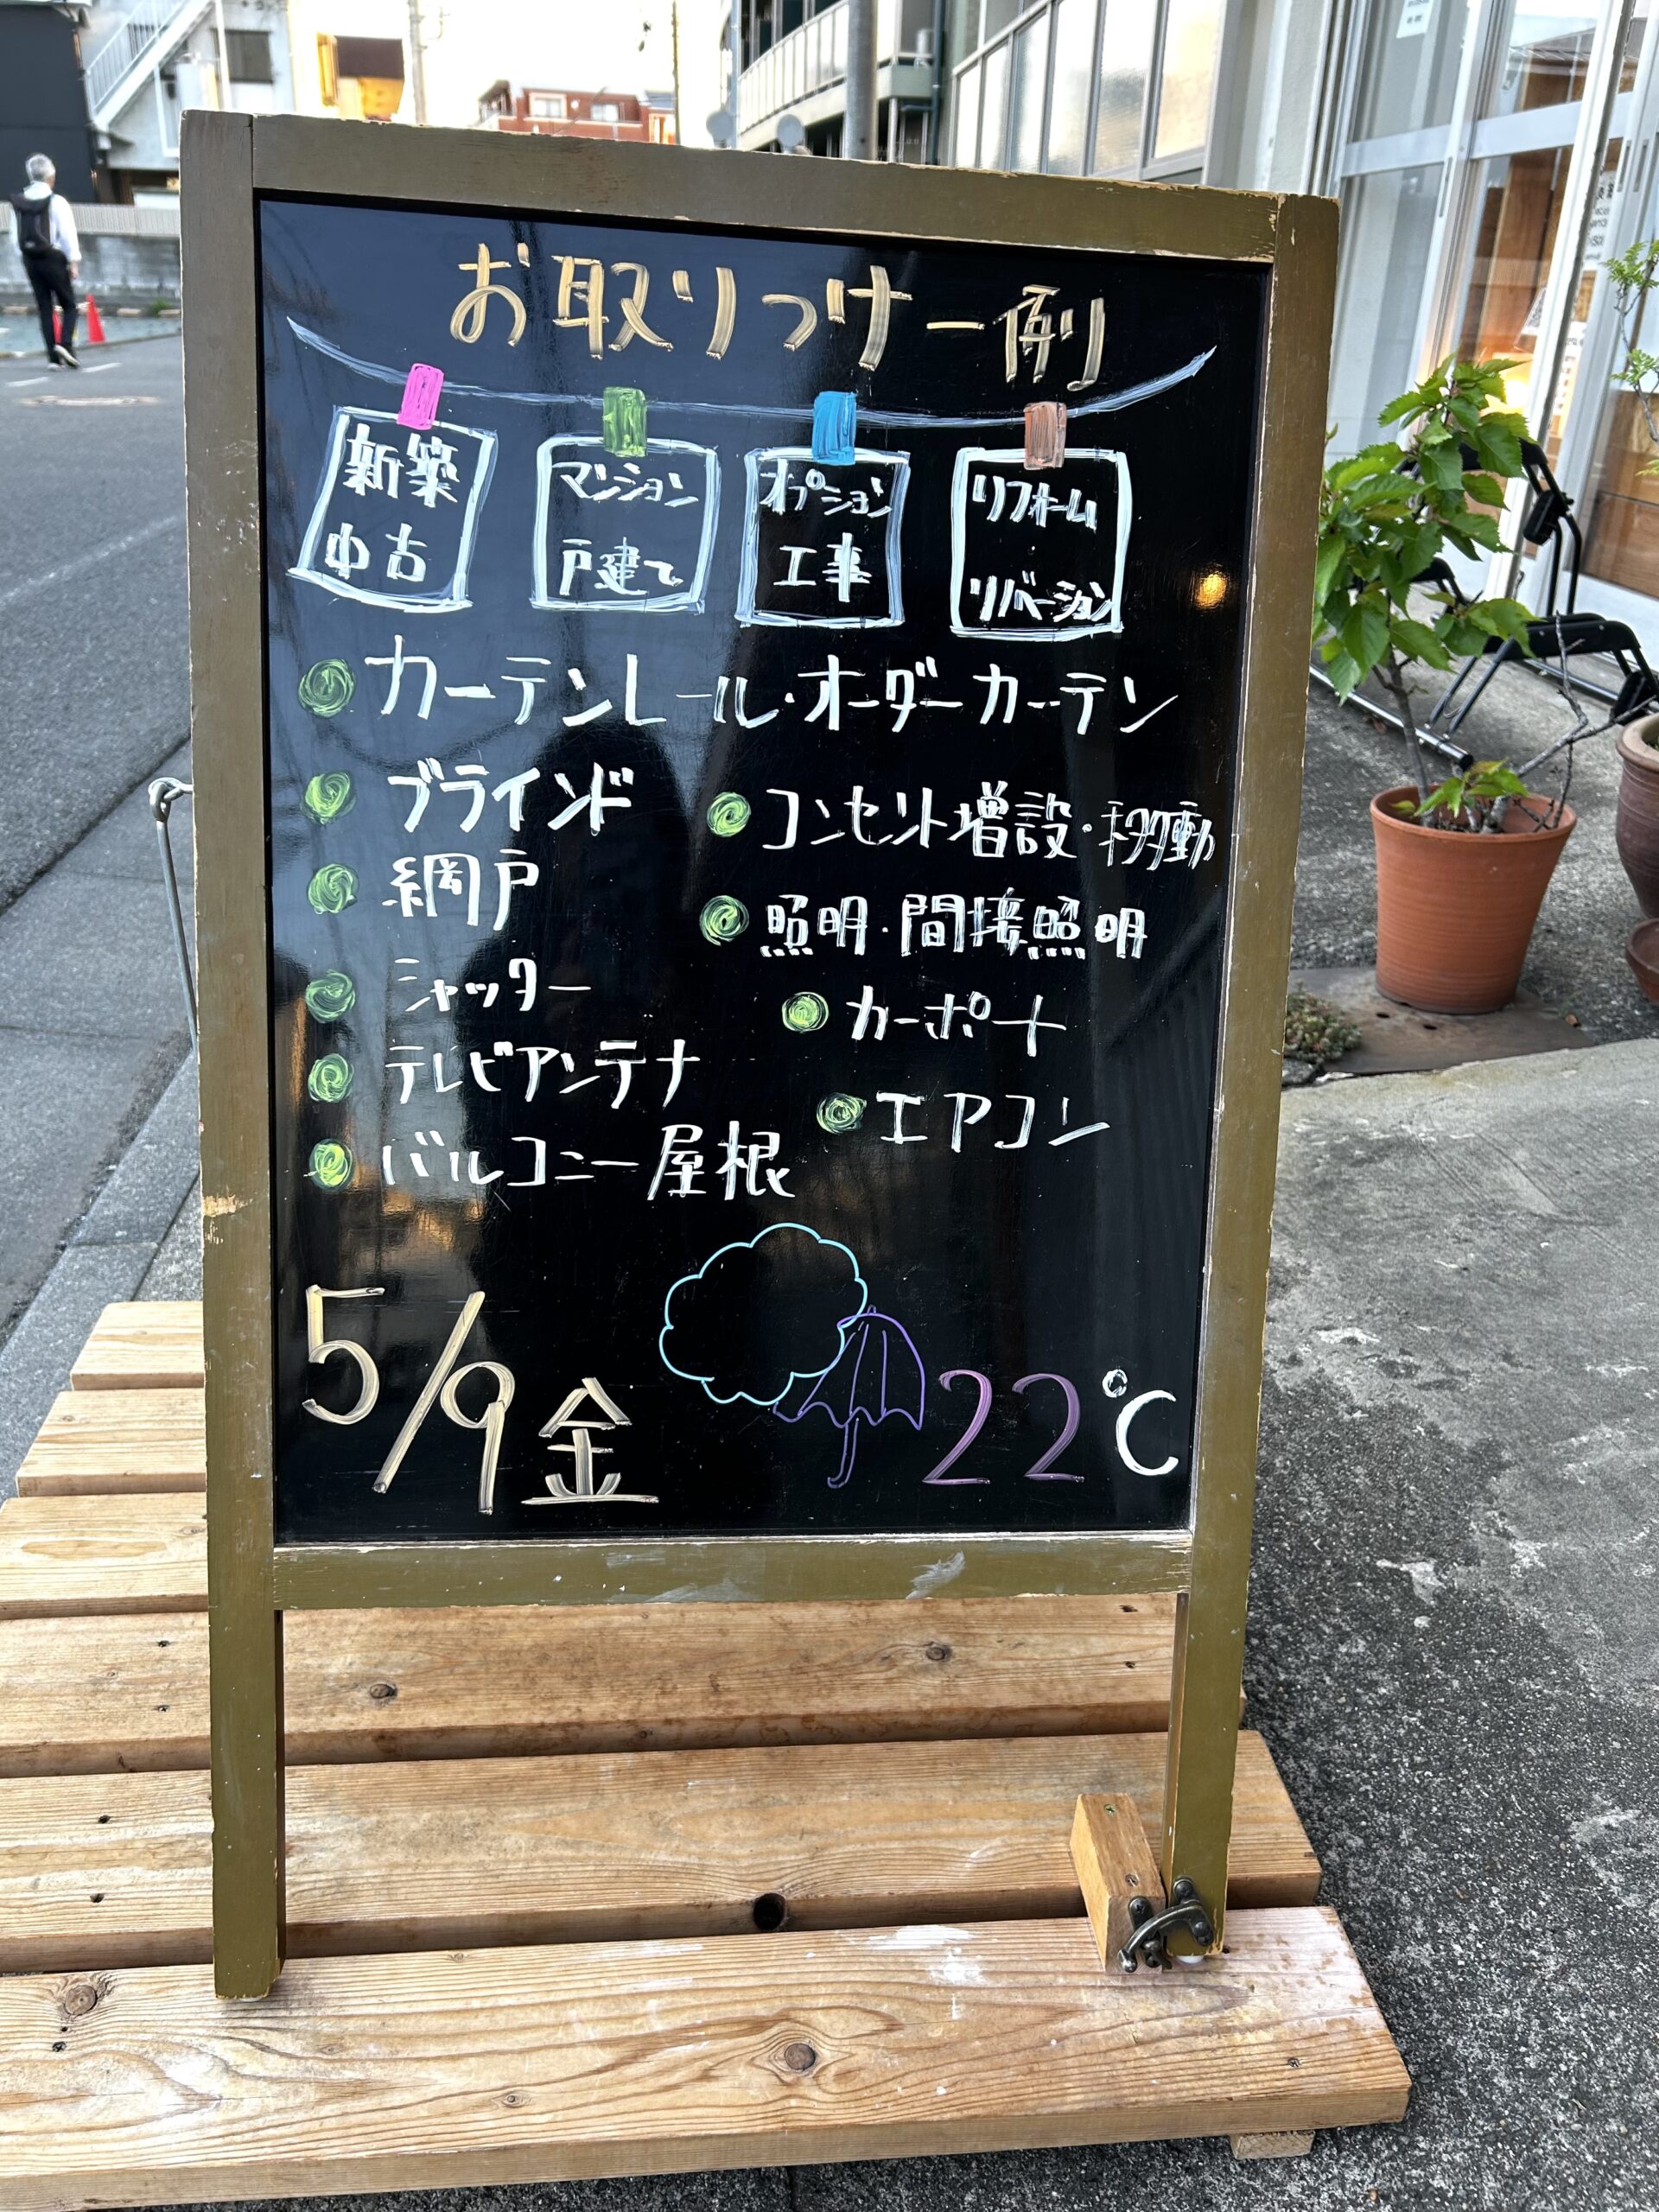 お取りつけ一例
新築
中古
マンション
戸建て
オプション
工事
リフォーム
リバーション
カーテンレール・オーダーカーテン
ブラインド
網戸
シャッター
テレビアンテナ
バルコニー屋根
コンセント増設・移動
照明・間接照明
カーポート
エアコン
5/9金
22℃